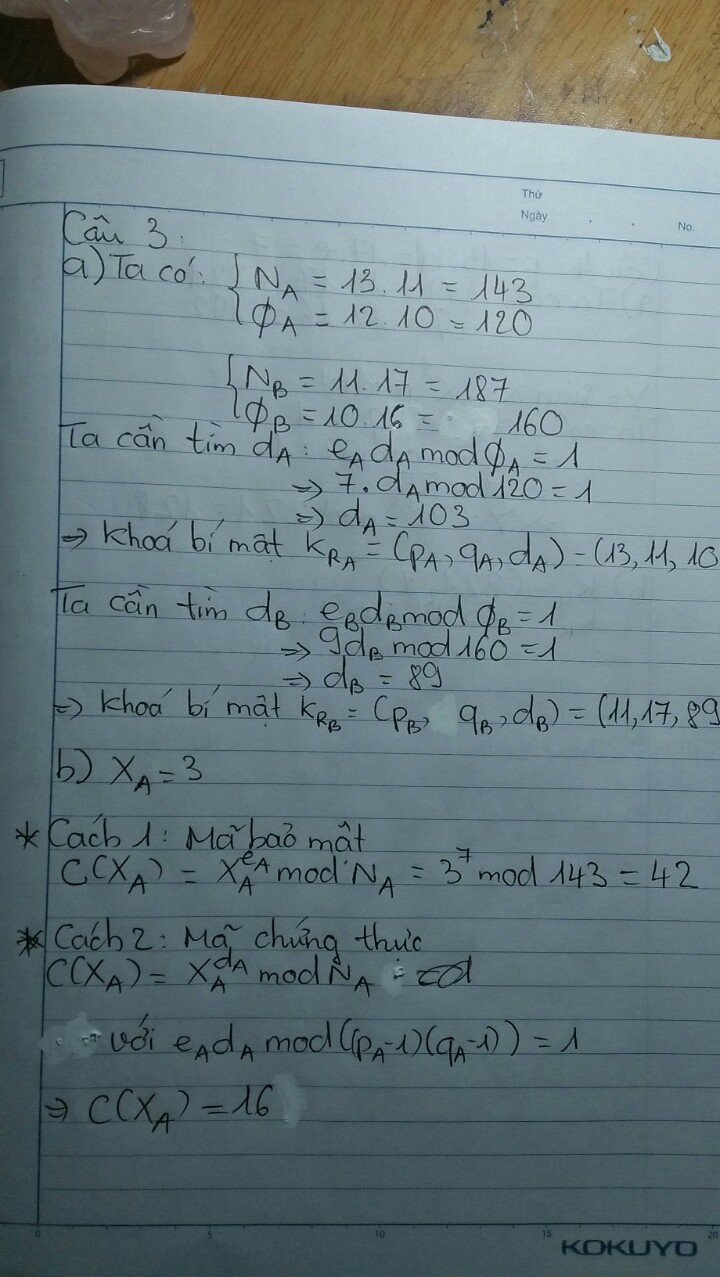 Thứ
Ngày . . No.
Câu 3:
a) Ta có: { N_A = 13.11 = 143
ϕ_A = 12.10 = 120
{ N_B = 11.17 = 187
ϕ_B = 10.16 = 160
Ta cần tìm d_A: e_A d_A mod ϕ_A = 1
⇒ 7.d_A mod 120 = 1
⇒ d_A = 103
⇒ khoá bí mật k_{R_A} = (p_A, q_A, d_A) = (13, 11, 10
Ta cần tìm d_B: e_B d_B mod ϕ_B = 1
⇒ 9d_B mod 160 = 1
⇒ d_B = 89
⇒ khoá bí mật k_{R_B} = (p_B, q_B, d_B) = (11, 17, 89
b) X_A = 3
* Cách 1: Mã bảo mật
C(X_A) = X_A^{e_A} mod N_A = 3^7 mod 143 = 42
* Cách 2: Mã chứng thực
C(X_A) = X_A^{d_A} mod N_A
với e_A d_A mod((p_A-1)(q_A-1)) = 1
⇒ C(X_A) = 16
0 5 10 15 20
KOKUYO